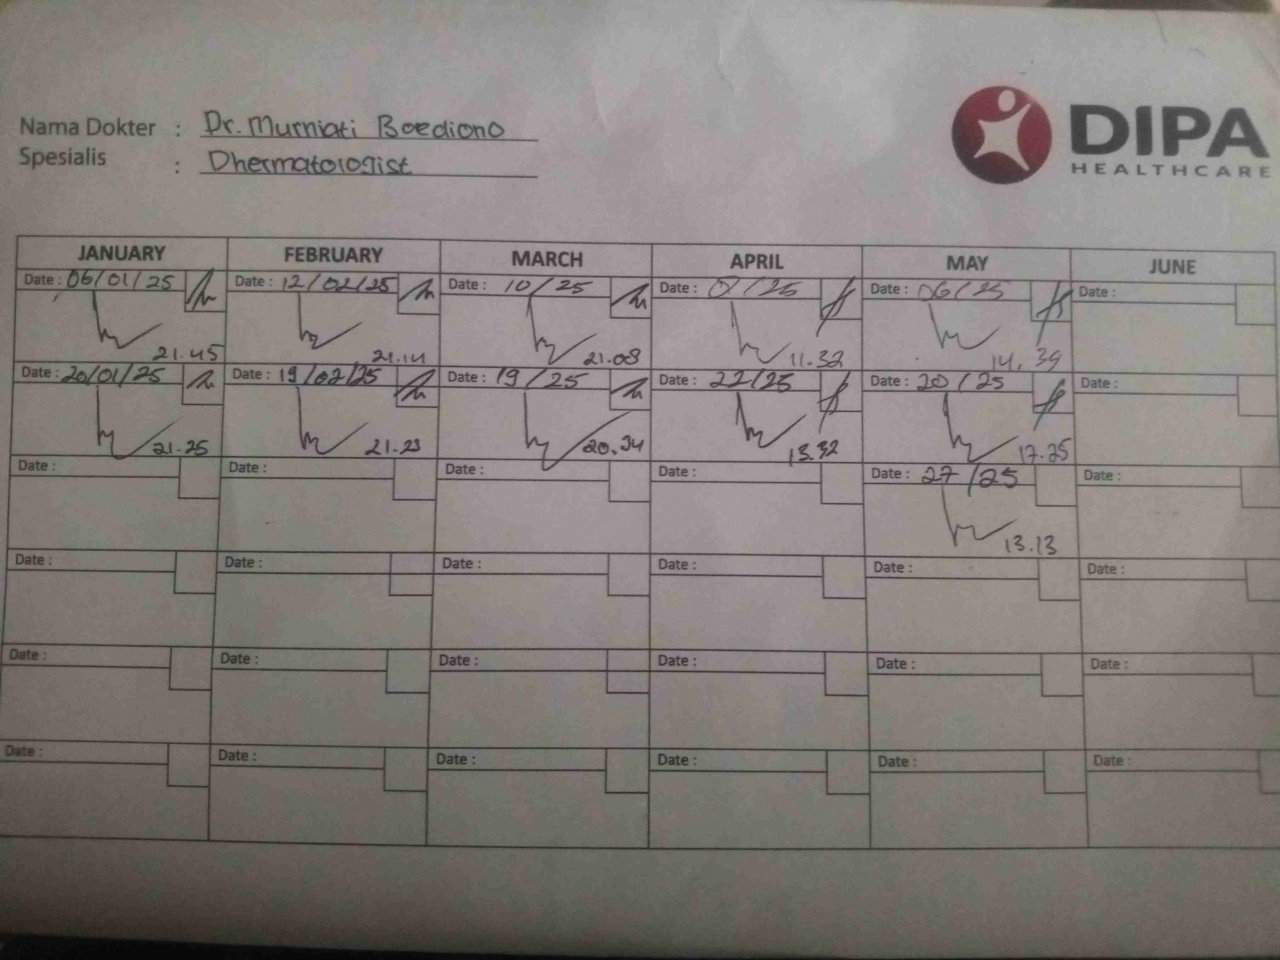 Nama Dokter : Dr. Murniati Boediono
Spesialis : Dhermatologist
DIPA
HEALTHCARE
JANUARY FEBRUARY MARCH APRIL MAY JUNE
Date : 06/01/25 Date : 12/02/25 Date : 10/25 Date : 01/25 Date : 06/25 Date :
21.45 21.14 21.08 11.32 14.39
Date : 20/01/25 Date : 19/02/25 Date : 19/25 Date : 22/25 Date : 20/25 Date :
21.25 21.23 20.34 13.32 17.25
Date : Date : Date : Date : Date : 27/25 Date :
13.13
Date : Date : Date : Date : Date : Date :
Date : Date : Date : Date : Date : Date :
Date : Date : Date : Date : Date : Date :